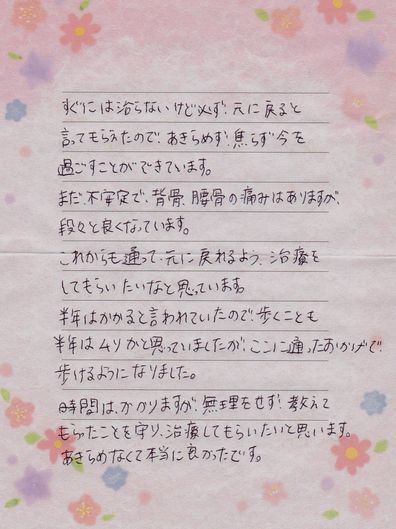 すぐには治らないけど必ず元に戻ると
言ってもらえたので、あきらめず焦らず今を
過ごすことができています。
まだ不安定で、背骨、腰骨の痛みはありますが、
段々と良くなっています。
これからも通って、元に戻れるよう、治療を
してもらいたいなと思っています。
半年はかかると言われていたので、歩くことも
半年はムリかと思っていましたが、ここに通ったおかげで
歩けるようになりました。
時間は、かかりますが、無理をせず、教えて
もらったことを守り、治療してもらいたいと思います。
あきらめなくて本当に良かったです。